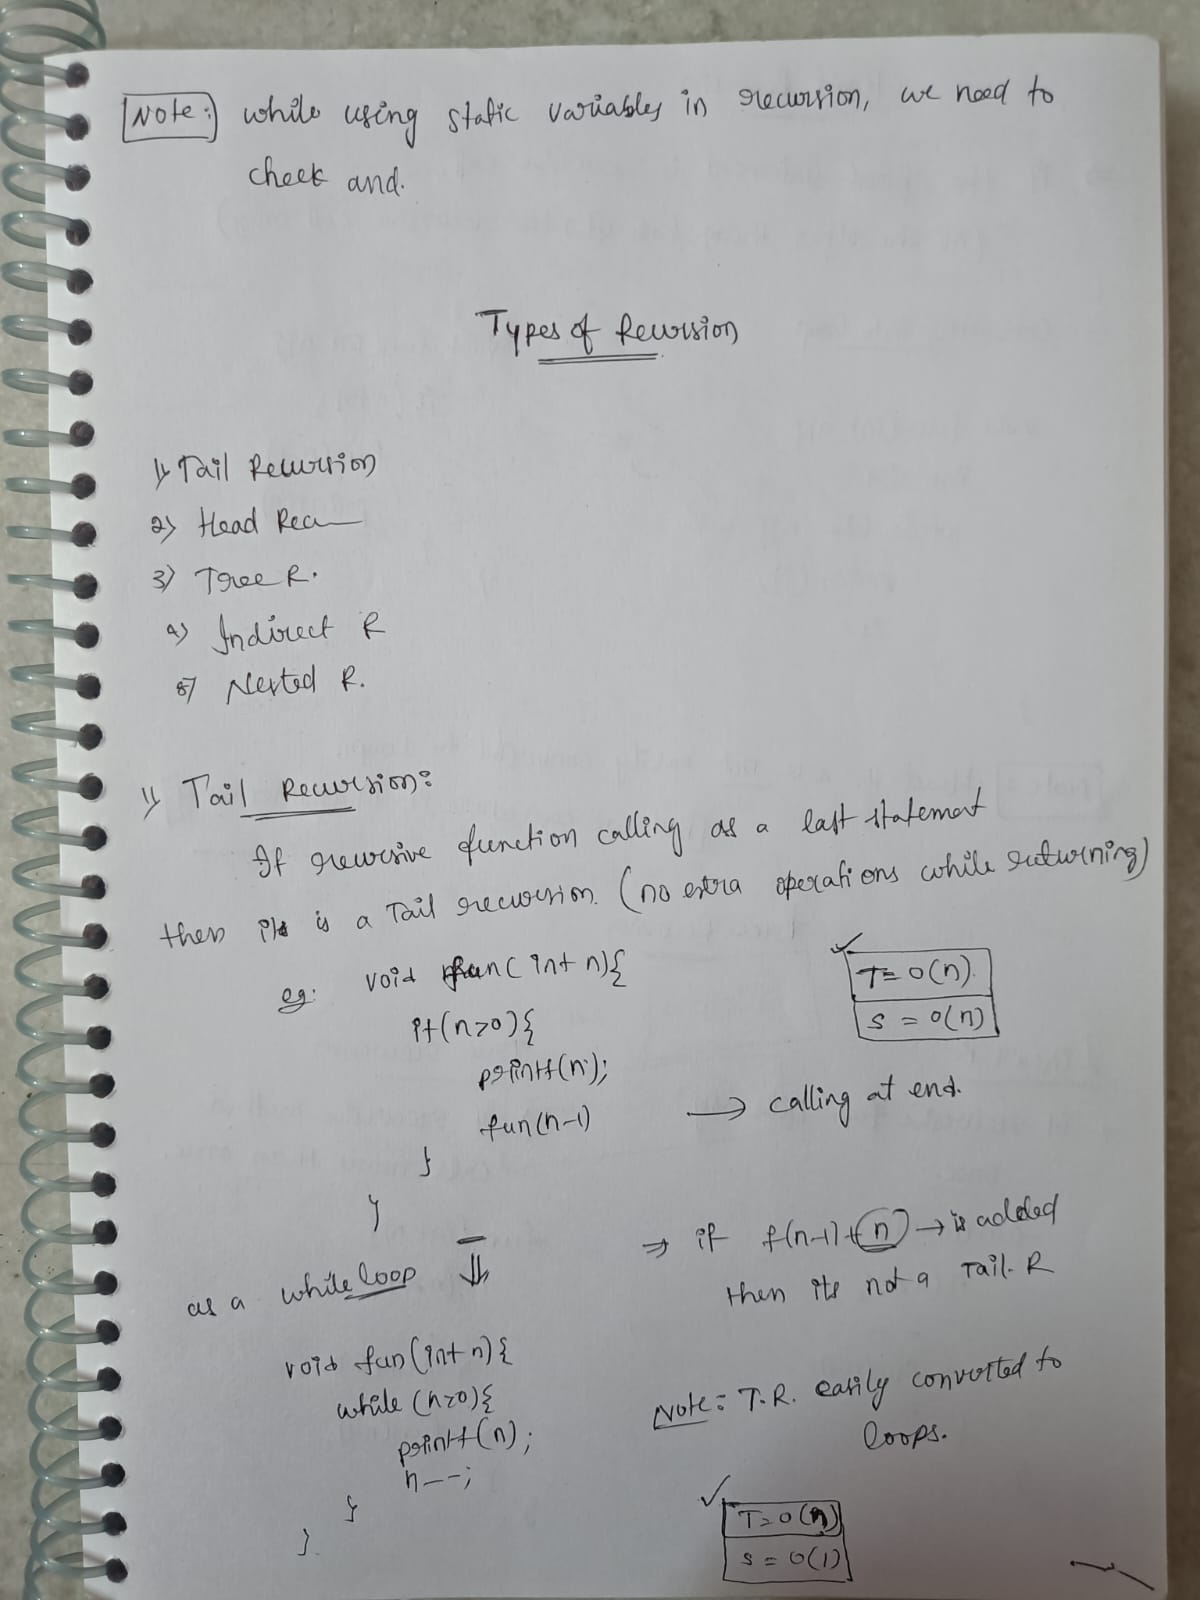 Note:) while using static variables in recursion, we need to
check and.
Types of Recursion
1) Tail Recursion
2) Head Recu
3) Tree R.
4) Indirect R
5) Nested R.
1) Tail Recursion:
If recursive function calling as a last statement
then it is a Tail recursion. (no extra operations while returning)
eg: void fun( int n){
if(n>0){
printf(n);
fun(n-1) → calling at end.
}
}
T= O(n).
S = O(n)
⇒ if f(n-1)+(n) → is added
then its not a Tail. R
as a while loop ⇓
void fun(int n){
while (n>0){
printf(n);
n--;
}
}.
Note: T.R. easily converted to
loops.
T= O(n)
S = O(1)